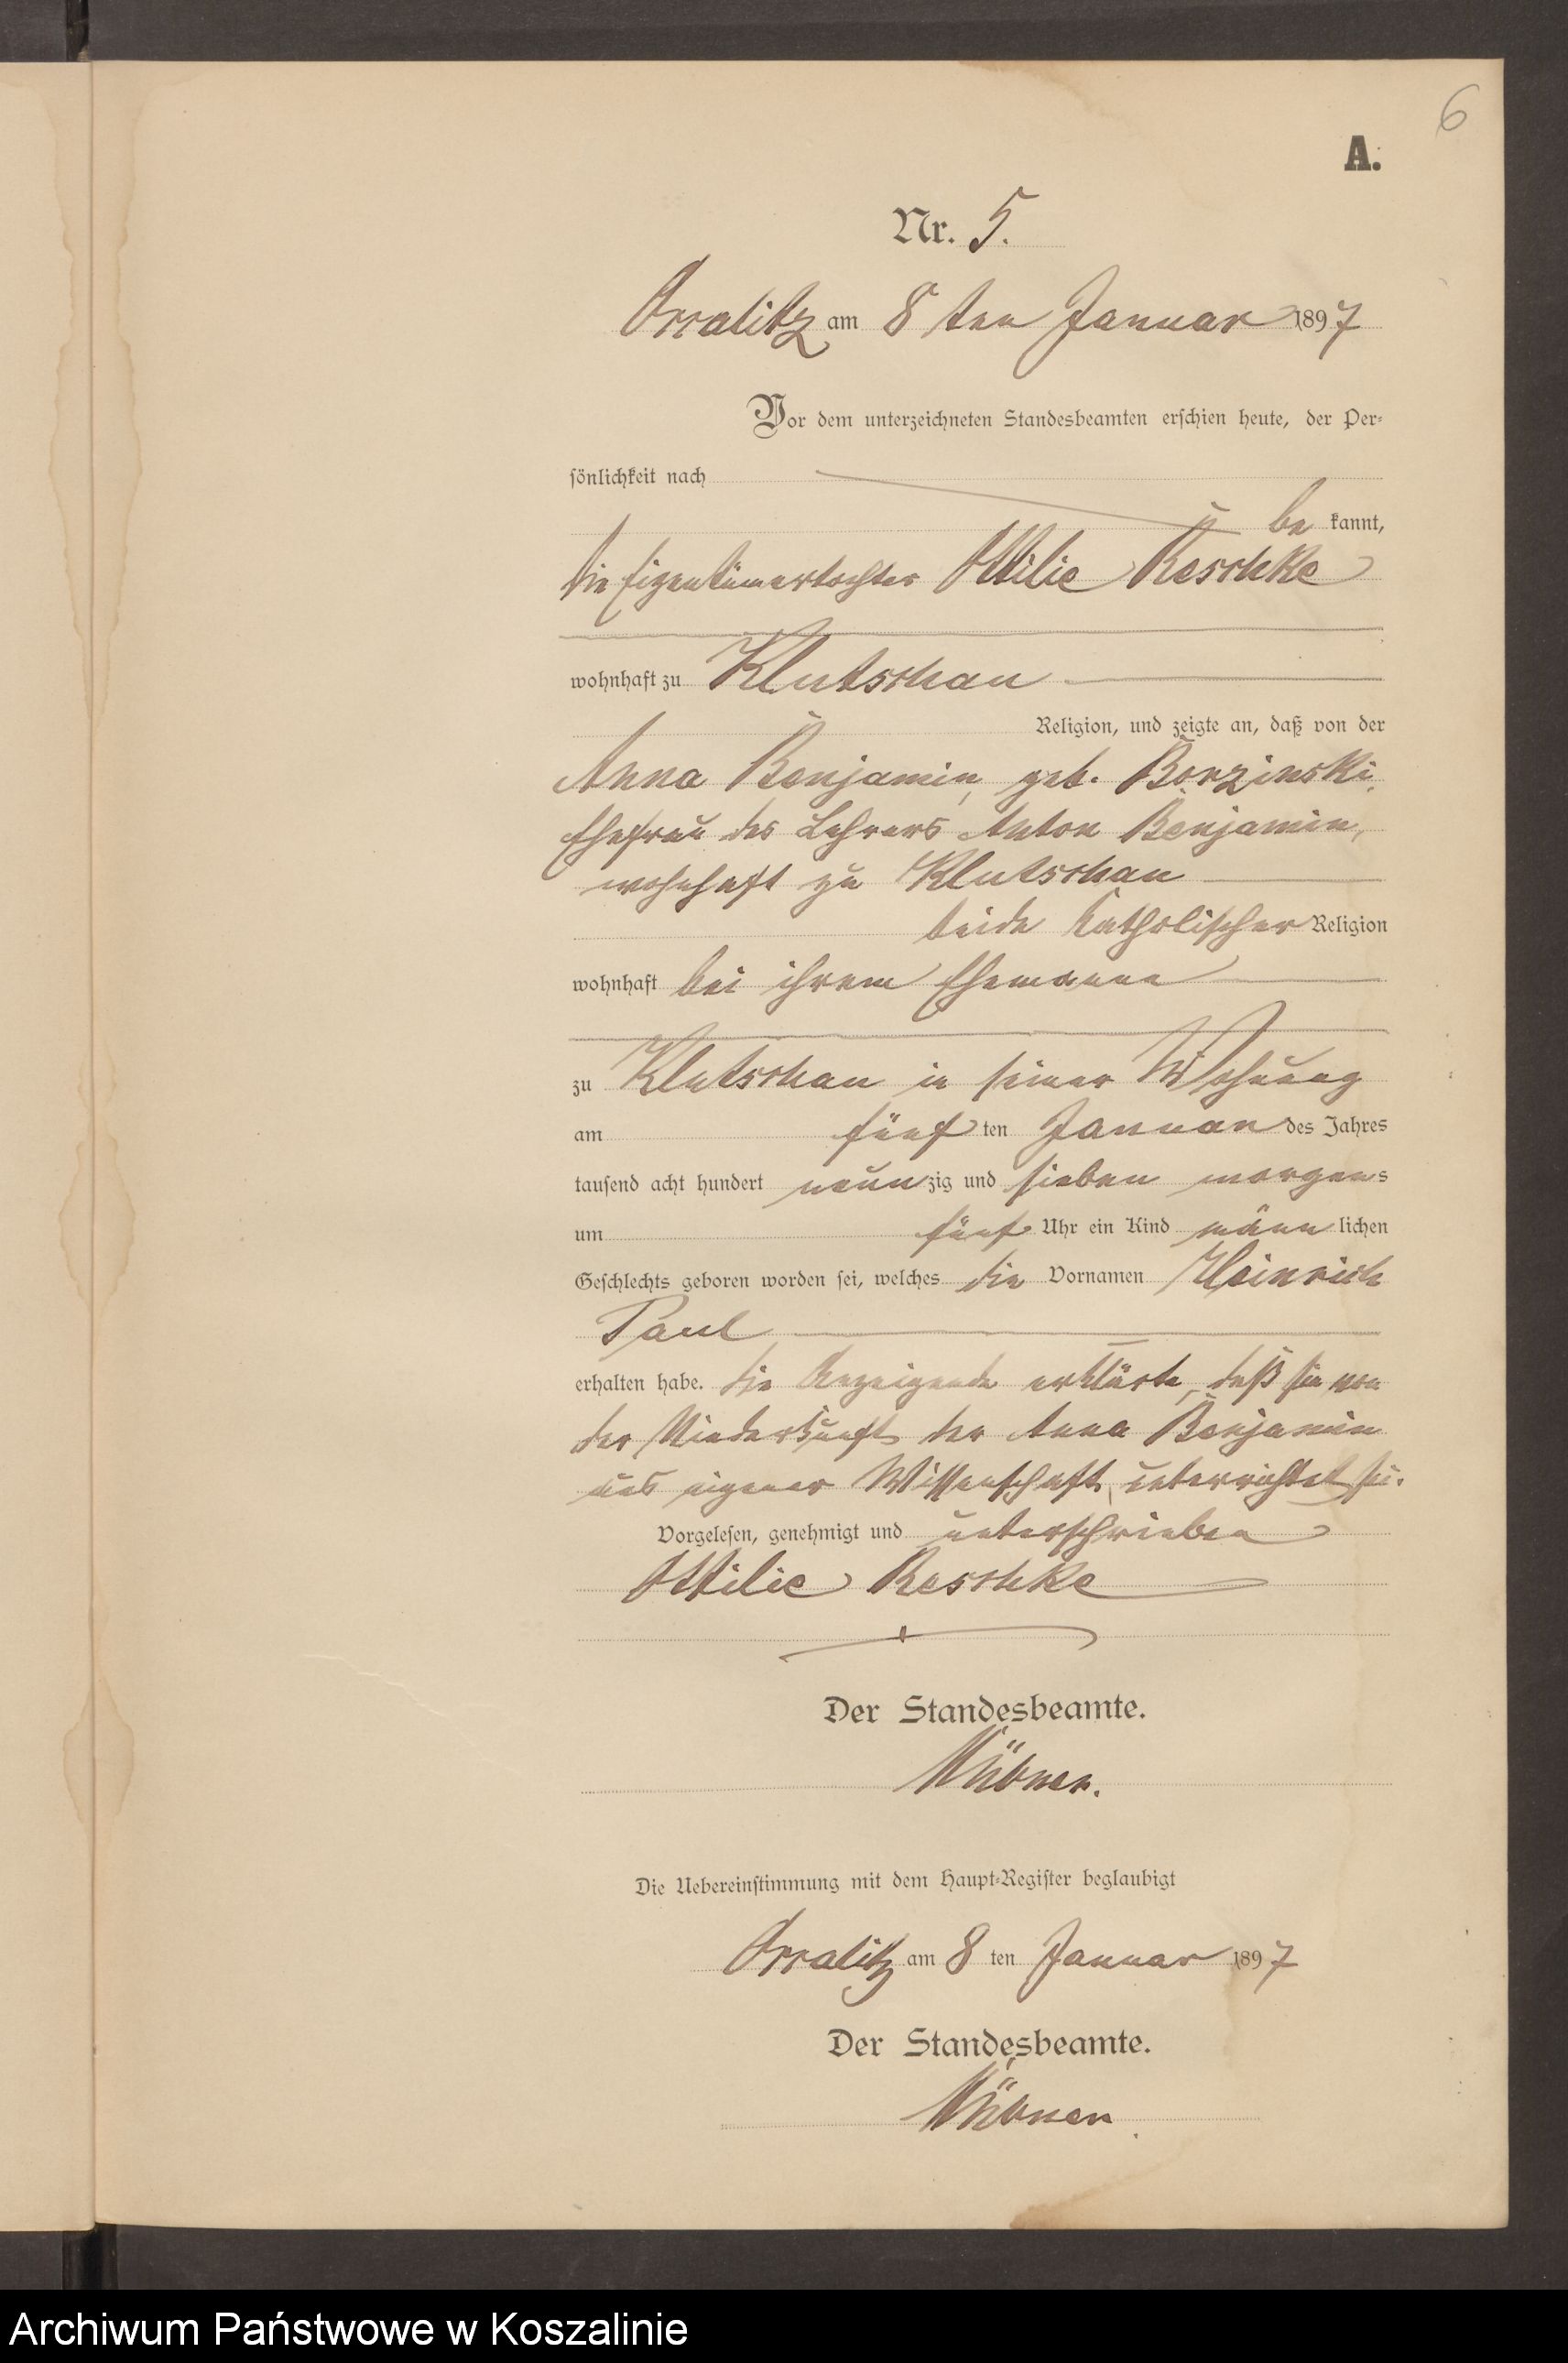 6
A.
Nr. 5.
Ossalitz am 8 ten Januar 1897
Vor dem unterzeichneten Standesbeamten erschien heute, der Per-
sönlichkeit nach
be kannt,
die Eigentümertochter Ottilie Reschke
wohnhaft zu Klutschau
Religion, und zeigte an, daß von der
Anna Benjamin, geb. Borzinski,
Ehefrau des Lehrers Anton Benjamin,
wohnhaft zu Klutschau
beide katholischer Religion
wohnhaft bei ihrem Ehemanne
zu Klutschau in seiner Wohnung
am fünf ten Januar des Jahres
tausend acht hundert neun zig und sieben morgens
um fünf Uhr ein Kind männ lichen
Geschlechts geboren worden sei, welches die Vornamen Heinrich
Paul
erhalten habe. Die Anzeigende erklärte, daß sie von
der Niederkunft der Anna Benjamin
aus eigener Wissenschaft unterrichtet sei.
Vorgelesen, genehmigt und unterschrieben
Ottilie Reschke
Der Standesbeamte.
Die Uebereinstimmung mit dem Haupt-Register beglaubigt
Ossalitz am 8 ten Januar 1897
Der Standesbeamte.
Archiwum Państwowe w Koszalinie